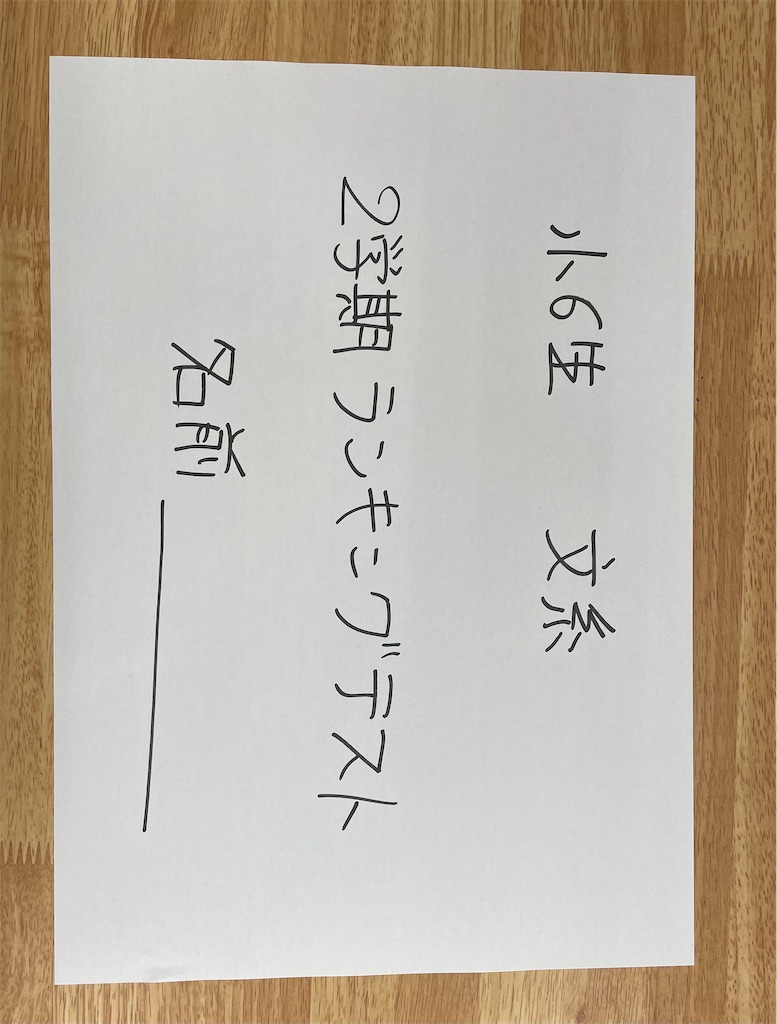 小6生 文系
2学期 ランキングテスト
名前